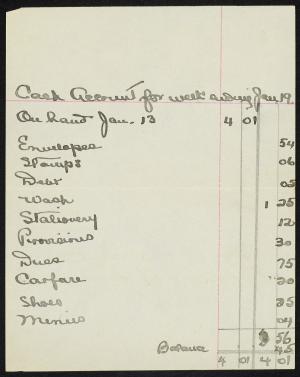 Cash Account for week ending Jan. 19
On hand Jan. 13 4 01
Envelopes 54
Stamps 06
Debt 05
Wash 1 25
Stationery 12
Provisions 30
Dues 75
Carfare 20
Shoes 25
Menus 04
56
Balance 45
4 01 4 01